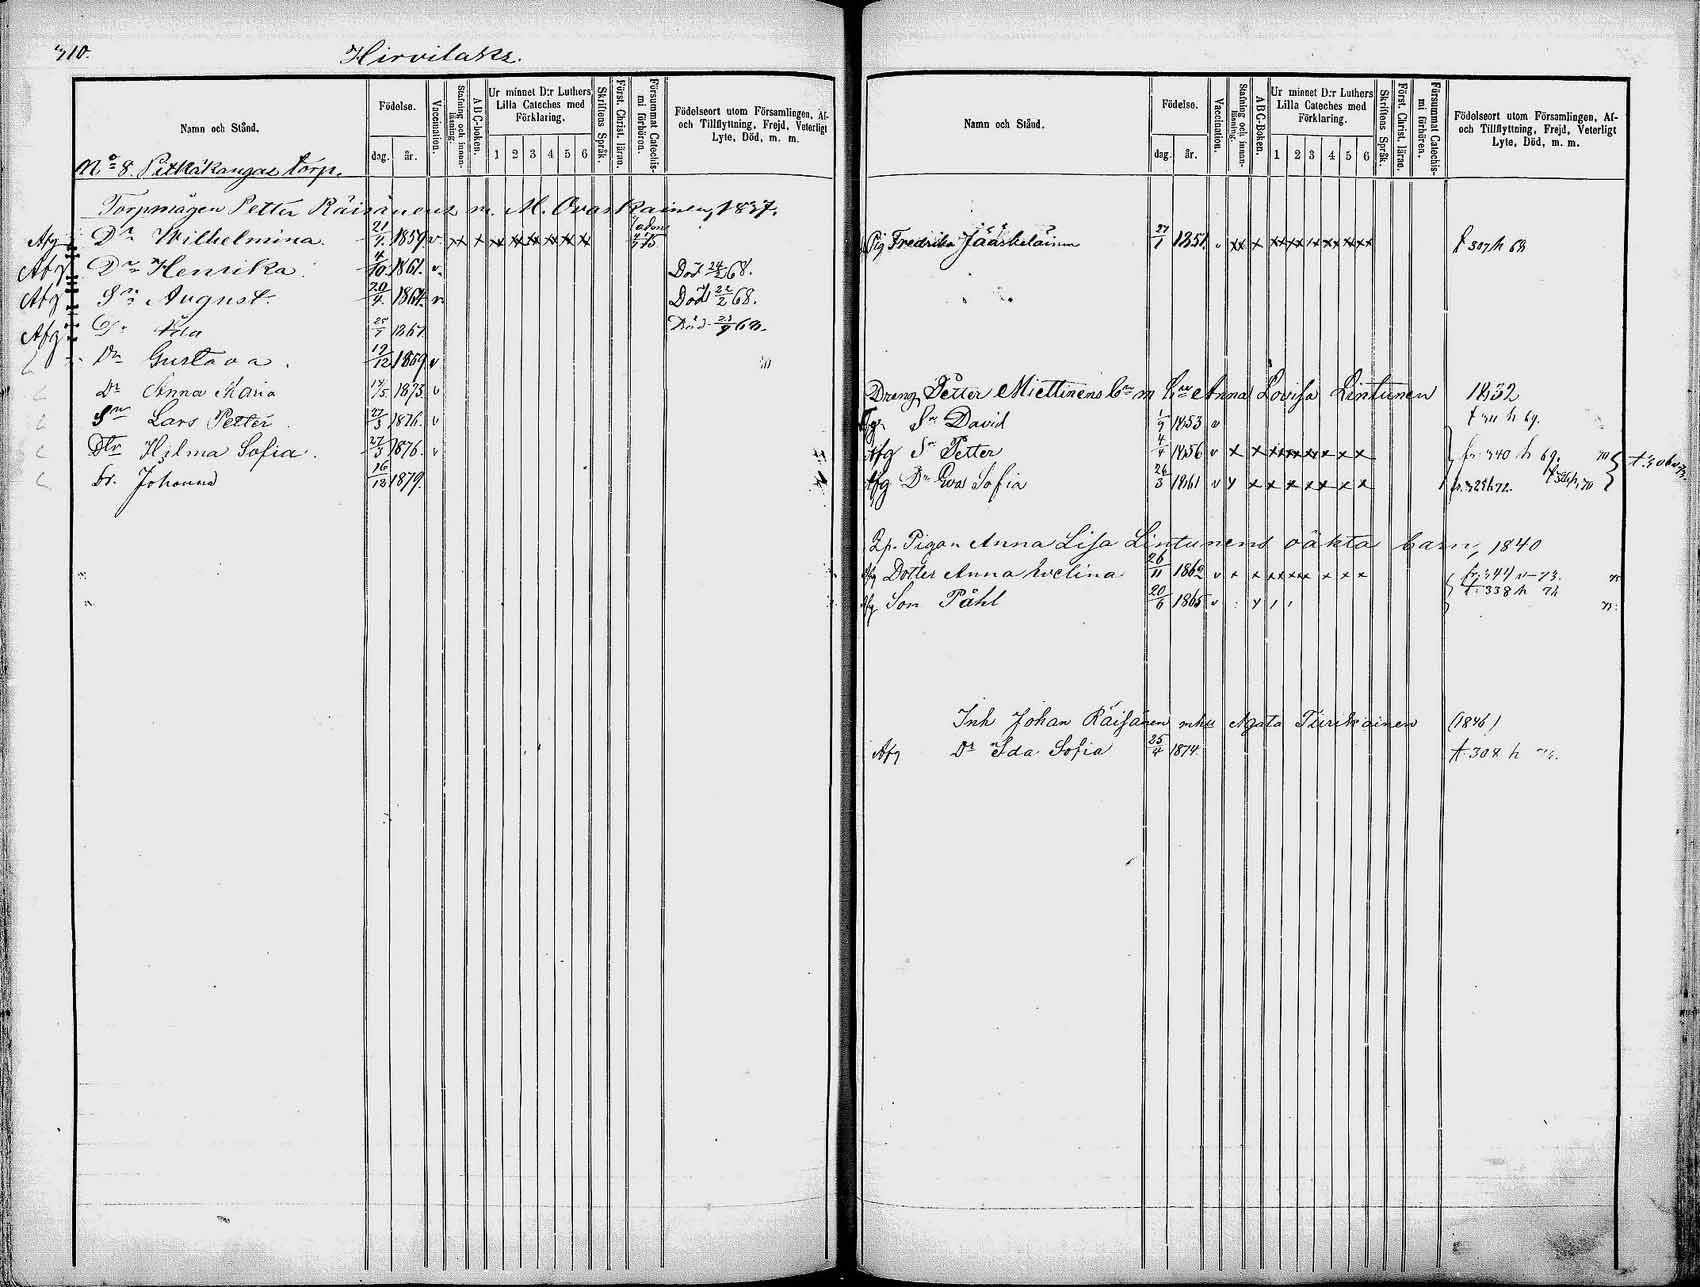 310.
Hirvilaks.
Namn och Stånd.
Födelse.
dag. år.
Vaccination.
Stafning och innan-läsning.
A B C-boken.
Ur minnet D:r Luthers Lilla Cateches med Förklaring.
1 2 3 4 5 6
Skriftens Språk.
Först. Christ. läran.
Försummat Catechis-mi förhören.
Födelseort utom Församlingen, Af- och Tillflyttning, Frejd, Veterligt Lyte, Död, m. m.
No 8. Pitkäkangas torp.
Torpmågen Petter Räisänens m. M. Ovaskainen, 1837.
Afg Dr Wilhelmina. 21/1. 1859 v x x x x x x x x
Afg Dr Henrika 4/10. 1861. v. Död 24/2 68.
Afg Sn August. 20/4. 1864. v Död 22/2 68.
Afg Dr Ida 1867. Död 68.
Dr Gustava. 19/12 1869 v
Dr Anna Maria 1873. v
Sn Lars Petter. 27/3 1876. v
Dtr Hilma Sofia. 27/3 1876. v
Dr. Johanna 16/12 1879.
Namn och Stånd.
Födelse.
dag. år.
Vaccination.
Stafning och innan-läsning.
A B C-Boken.
Ur minnet D:r Luthers Lilla Cateches med Förklaring.
1 2 3 4 5 6
Skriftens Språk.
Först. Christ. läran.
Försummat Catechis-mi förhören.
Födelseort utom Församlingen, Af- och Tillflyttning, Frejd, Veterligt Lyte, Död, m. m.
Pig Fredrika Jääskeläinen 1851. v xx x xx xx x xx xx xx t 307 h 68
Dreng Petter Miettinens Anna Lovisa Lintunen 1832
Sn David 1/9 1853 v h 69.
Afg Sn Petter 4/4 1856 v x x x x x x x x fr. 340 h 69.
Afg Dr Eva Sofia 26/3 1861 v x x x x x x x x
Pigan Anna Lisa Lintunens oäkta barn, 1840
Afg Dotter Anna Evelina 26/11 1862 v x x xx xx x x x fr. 344 v 73.
Afg Son Påhl 20/6 1865 v t. 338 h 74
Inh Johan Räisänen mhu Agata Tiirikainen (1846)
Afg Dr Ida Sofia 25/4 1874. t. 308 h